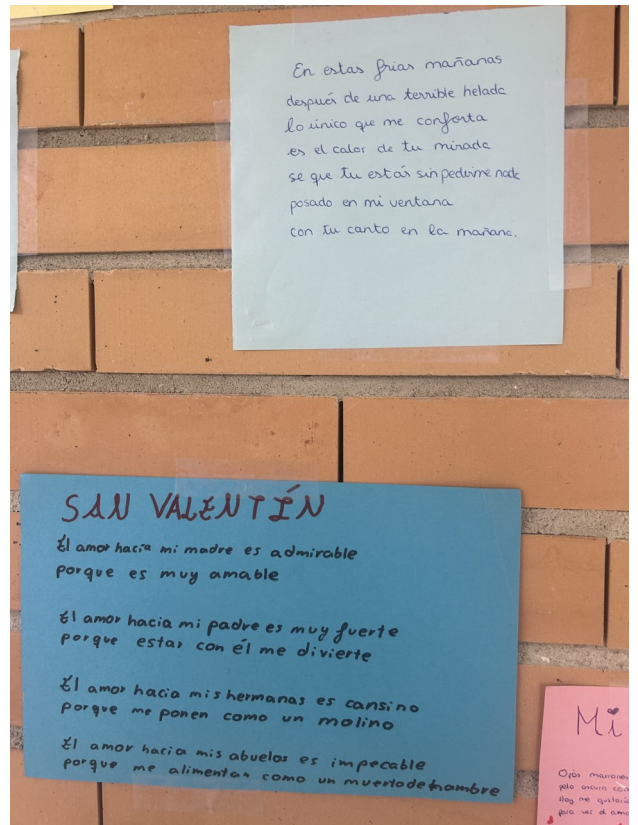 En estas frias mañanas
después de una terrible helada
lo único que me conforta
es el calor de tu mirada
se que tu estás sin pedirme nada
posado en mi ventana
con tu canto en la mañana.
SAN VALENTÍN
El amor hacia mi madre es admirable
porque es muy amable
El amor hacia mi padre es muy fuerte
porque estar con él me divierte
El amor hacia mis hermanas es cansino
porque me ponen como un molino
El amor hacia mis abuelos es impecable
porque me alimentan como un muerto de hambre
Mi
Ojos marrones
pelo oscuro con
Hoy me gustaría
para ver el amo